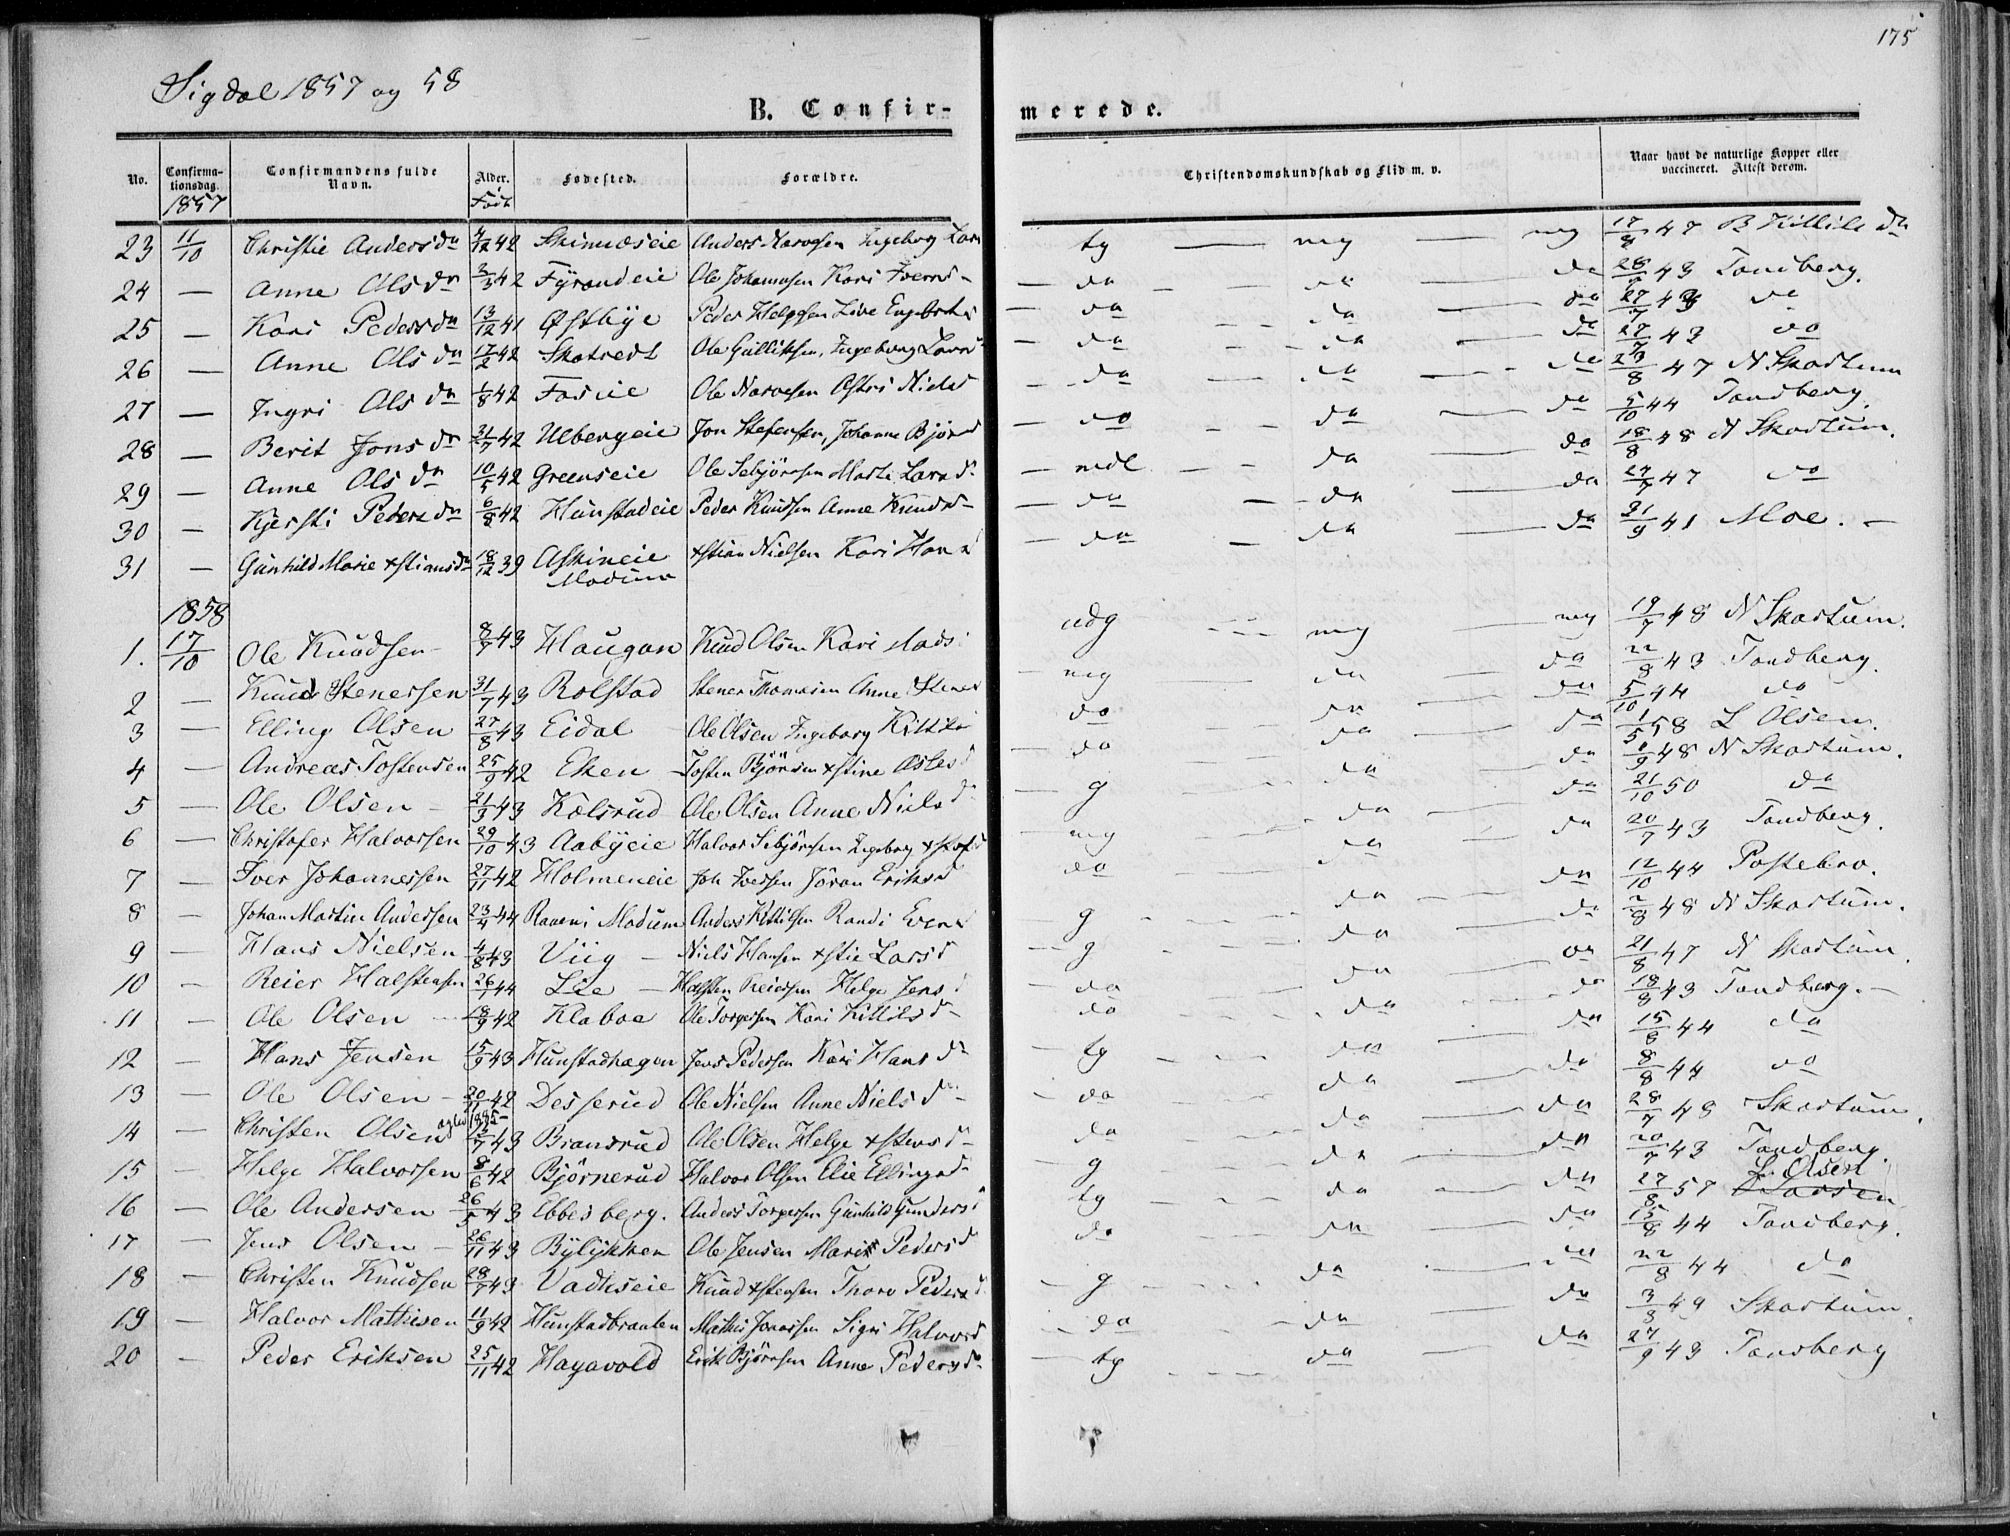 175
Sigdal 1857 og 58
B. Confir-
merede.
No. Confirmationsdag. Confirmandens fulde Navn. Alder. Fødested. Forældre. Christendomskundskab og Flid m. v. Naar havt de naturlige Kopper eller vaccineret. Attest derom.
1857 Født
23 11/10 Christie Anders dn 4/12 42 Skinnæseie Anders Narvesen Ingeborg Lars tg — mg — mg 17/8 47 B Kittils dn
24 — Anne Ols dn 3/3 42 Fyrandeie Ole Johannesen Kari Ivers d — do — do — do 28/7 43 Tandberg.
25 — Kari Peders dn 13/12 41 Østbye Peder Helgesen Live Engebrets — do — do — do 27/7 43 do
26 — Anne Ols dn 17/2 42 Skatvedt Ole Gulliksen, Ingeborg Lars — do — do — do 27/7 43 do
27 — Ingri Ols dn 1/8 42 Foseie Ole Narvesen Astri Niels d — do — do — do 23/8 47 N Skartum
28 — Berit Jons dn 31/7 42 Ulbergeie Jon Stefensen, Johanne Bjørns d — do — do — do 5/10 44 Tandberg.
29 — Anne Ols dn 10/5 42 Greenseie Ole Sebjørnsen Marte Lars d — mdl — do — do 18/8 48 N Skartum.
30 — Kjersti Peders dn 6/8 42 Hunstadeie Peder Knudsen Anne Knuds d — do — do — do 27/7 47 do
31 — Gunhild Marie xstians dn 18/12 39 Askineie Modum xstian Nielsen Kari Hans d — do — do — do 31/9 41 Moe. —
1858
1. 17/10 Ole Knudsen 8/7 43 Haugan Knud Olsen Kari Mads udg — mg — mg 19/7 48 N Skartum.
2 — Knud Stenersen 31/7 43 Rolstad Stener Thomasen Anne Steners mg — do — do 22/8 43 Tandberg.
3 — Elling Olsen 27/8 43 Eidal Ole Olsen Ingeborg Kittils do — do — do 5/10 44 do
4 — Andreas Tostensen 25/9 42 Eken Tosten Bjørnsen xstine Asles d — do — do — do 1/5 58 L Olsen.
5 — Ole Olsen 21/3 43 Kolsrud Ole Olsen Anne Niels d — g — do — do 1/9 48 N Skartum.
6 — Christofer Halvorsen 29/10 43 Aabyeie Halvor Sebjørnsen Ingeborg xstofs d mg — do — do 21/10 50 do
7 — Iver Johannessen 27/11 42 Holmeneie Joh Iversen Jøran Eriks d do — do — do 20/7 43 Tandberg.
8 — Johan Martin Andersen 23/4 44 Raaeni Modum Anders Kittilsen Randi Evens g — do — do 12/10 44 Postebro.
9 — Hans Nielsen 4/8 43 Viig — Niels Hansen xstie Lars d — g — do — do 2/8 48 N Skartum.
10 — Reier Halstensen 26/1 44 Lie — Halsten Reiersen Helge Jens d — do — do — do 21/8 47 N Skartum.
11 — Ole Olsen 18/9 42 Klaboe Ole Torgersen Kari Kittils d — do — do — do 18/8 43 Tandberg. —
12 — Hans Jensen 15/9 43 Hunstadhagen Jens Pedersen Kari Hans dn — tg — do — do 15/8 44 do
13 — Ole Olsen 20/11 42 Desserud Ole Nielsen Anne Niels d — do — do — do 8/8 44 do
14 — Christen Olsen 15/7 43 Bransrud Ole Olsen Helge xstens d — do — do — do 28/7 48 Skartum.
15 — Helge Halvorsen 8/6 42 Bjørnerud Halvor Olsen Elie Ellings d — g — do — do 20/7 43 Tandberg.
16 — Ole Andersen 26/5 43 Ebbesberg. Anders Torgersen Gunhild Gunders d tg — do — do 27/8 57 L. Olsen
17 — Jens Olsen — 26/11 43 Bylykken Ole Jensen Marie Peders d do — do — do 15/8 44 Tandberg.
18 — Christen Knudsen 28/7 43 Vadhseie Knud xstensen Thore Peders d — g — do — do 22/8 44 do
19 — Halvor Mathisen 11/9 42 Hunstadbraaten Mathis Joensen Sigri Halvors d — do — do — do 3/8 49 Skartum.
20 — Peder Eriksen 25/11 42 Hagavold Erik Bjørnsen Anne Peders d — tg — do — do 27/9 43 Tandberg